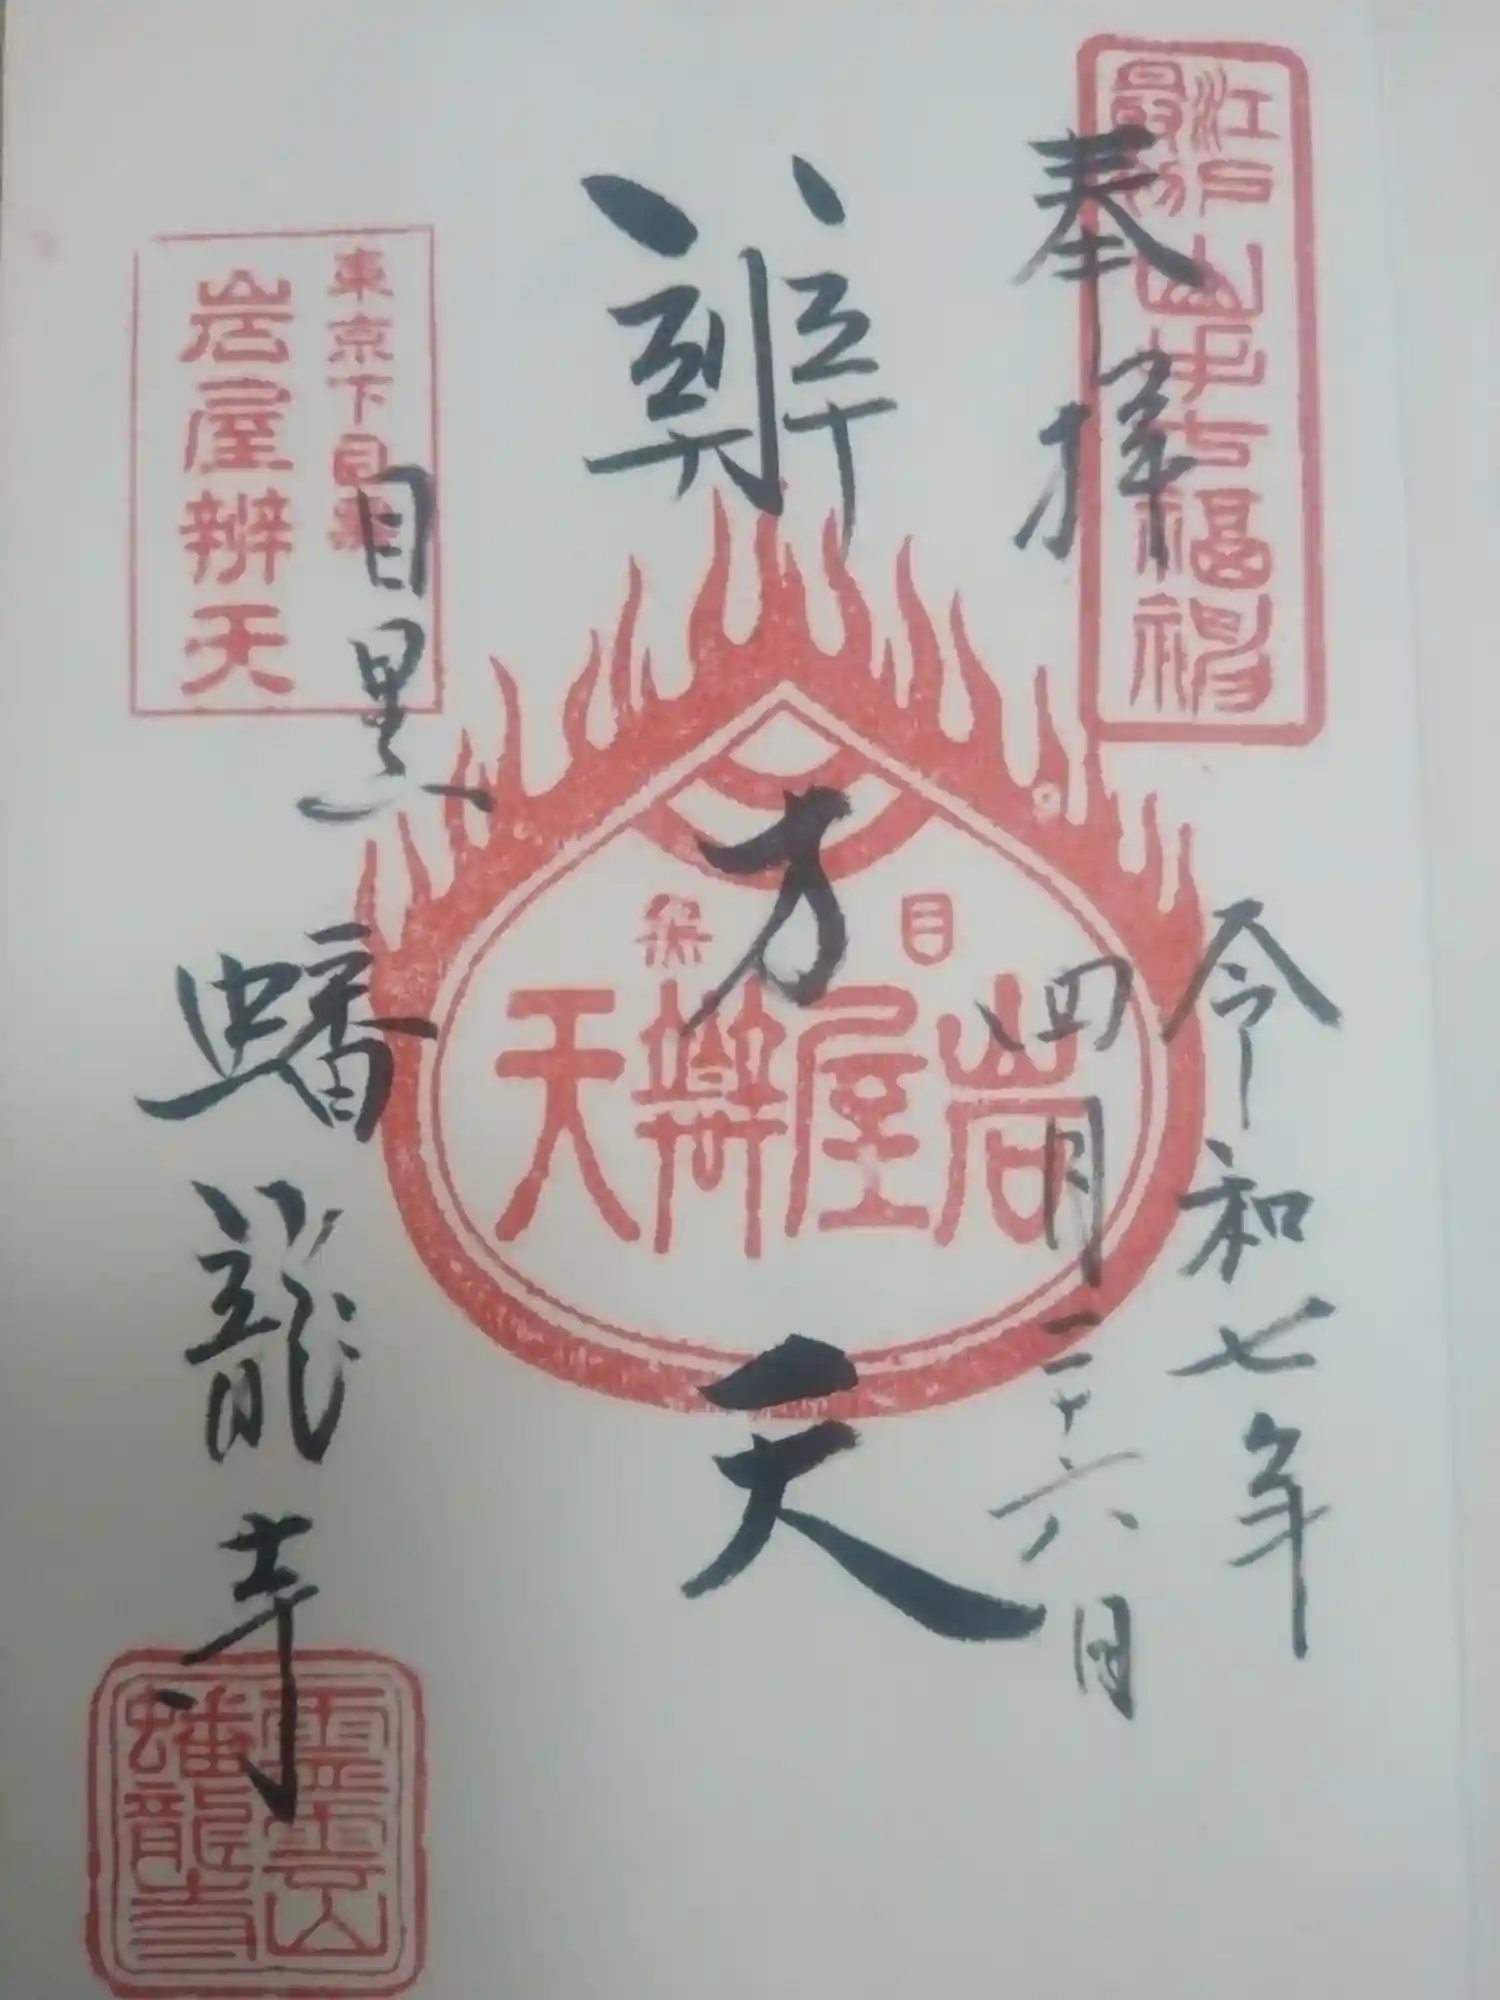 江戸最初
山手七福神
奉拝
令和七年
四月二十六日
辨才天
目黒
岩屋辨天
東京下目黒
岩屋辨天
目黒
蟠龍寺
霊雲山
蟠龍寺